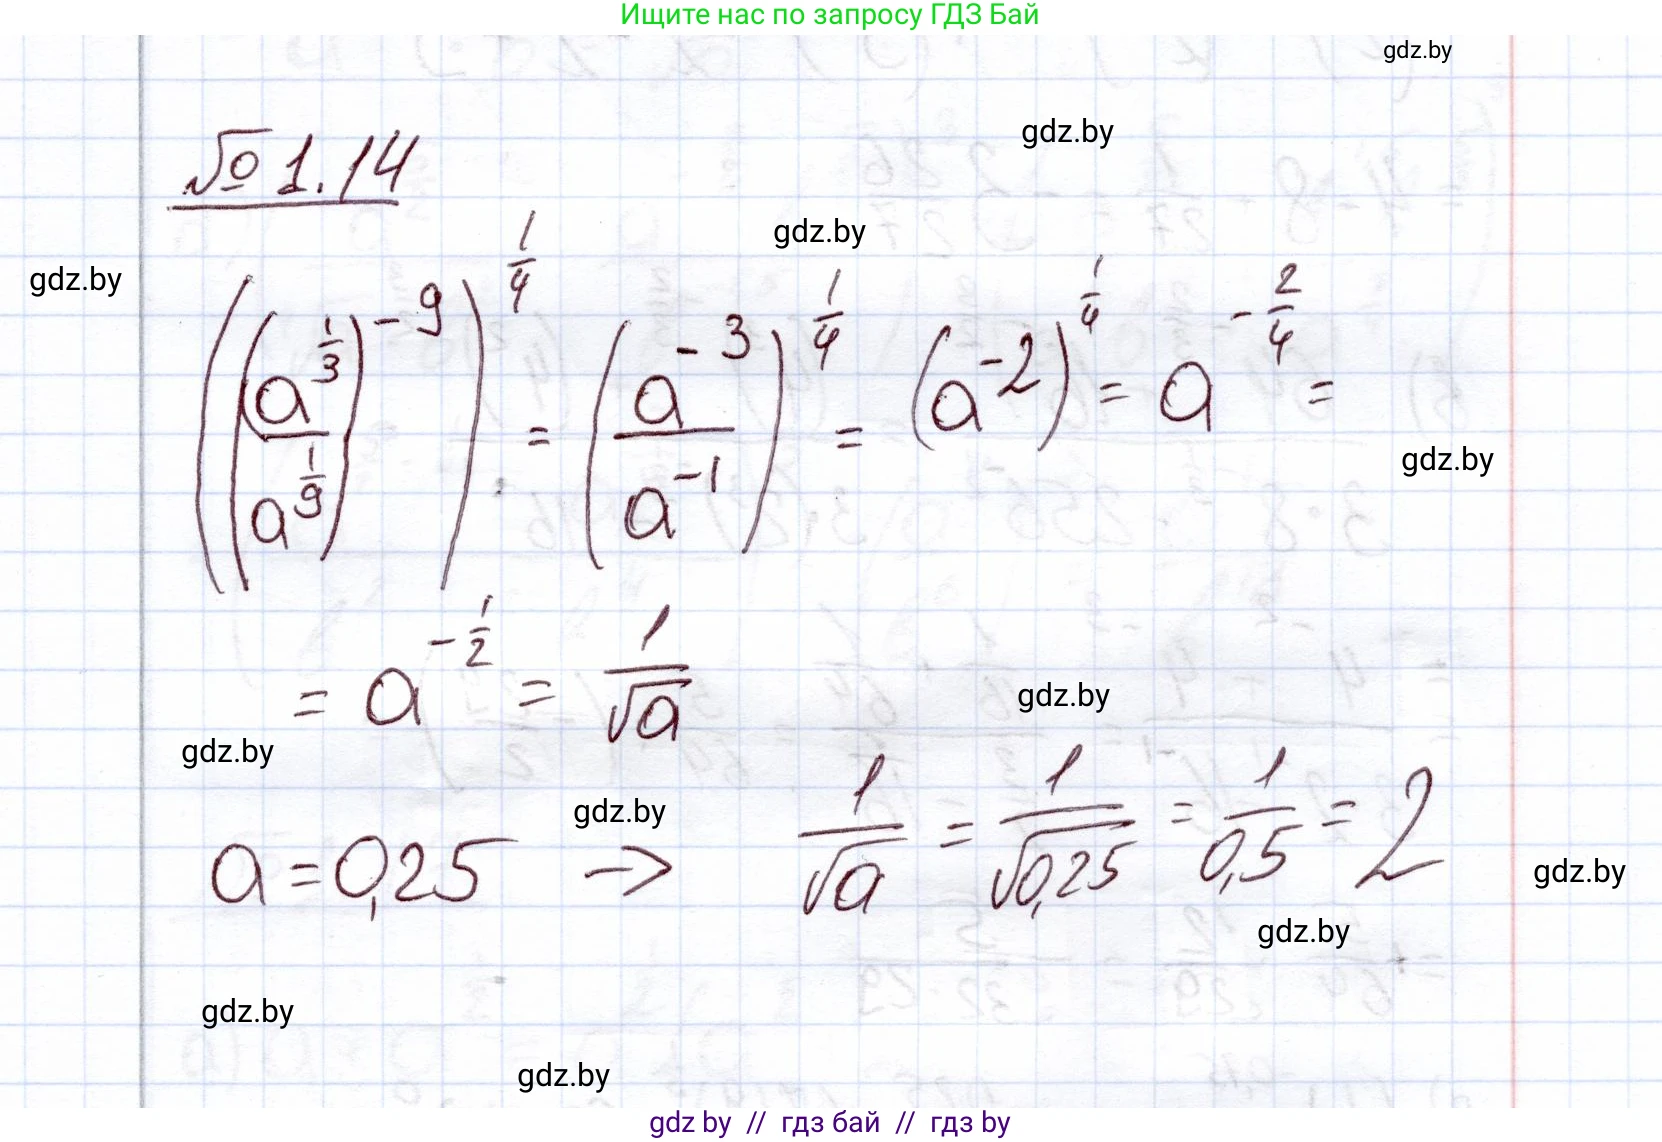 Ищите нас по запросу ГДЗ Бай
gdz.by
gdz.by
№ 1.14
gdz.by
gdz.by
((a^(1/3) / a^(1/9))^(-9))^(1/4) = (a^(-3) / a^(-1))^(1/4) = (a^(-2))^(1/4) = a^(-2/4) =
gdz.by
= a^(-1/2) = 1/√a
gdz.by
gdz.by
gdz.by
a = 0,25 → 1/√a = 1/√0,25 = 1/0,5 = 2
gdz.by
gdz.by
gdz.by
gdz.by
gdz by // гдз бай // гдз by